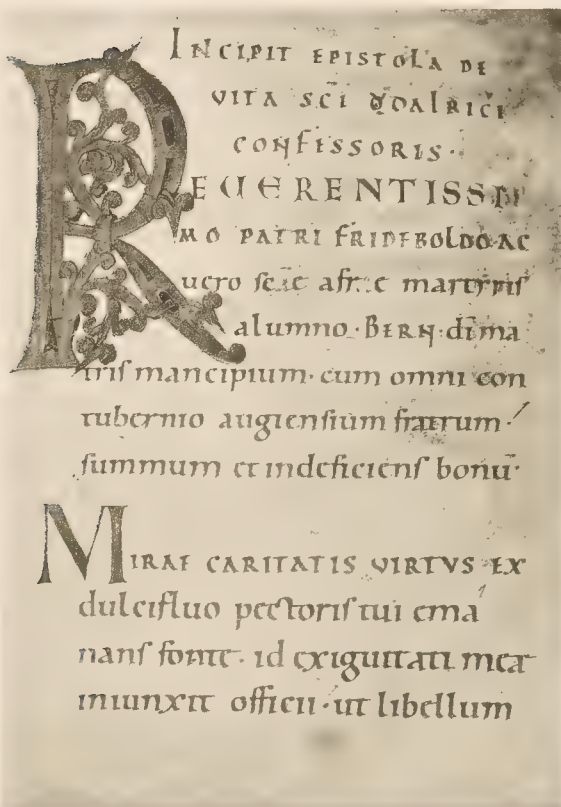 INCIPIT EPISTOLA DE
VITA SCI VDALRICI
CONFESSORIS·
REVERENTISSI
MO PATRI FRIDEBOLDO AC
uero sc̄ae afrae martyris
alumno· BERN· di ma
tris mancipium· cum omni con
tubernio augiensium fratrum·
summum et indeficiens bonū·
MIRAE CARITATIS VIRTVS EX
dulcifluo pectoris tui ema
nans fonte· id exiguitati meae
iniunxit officii· ut libellum